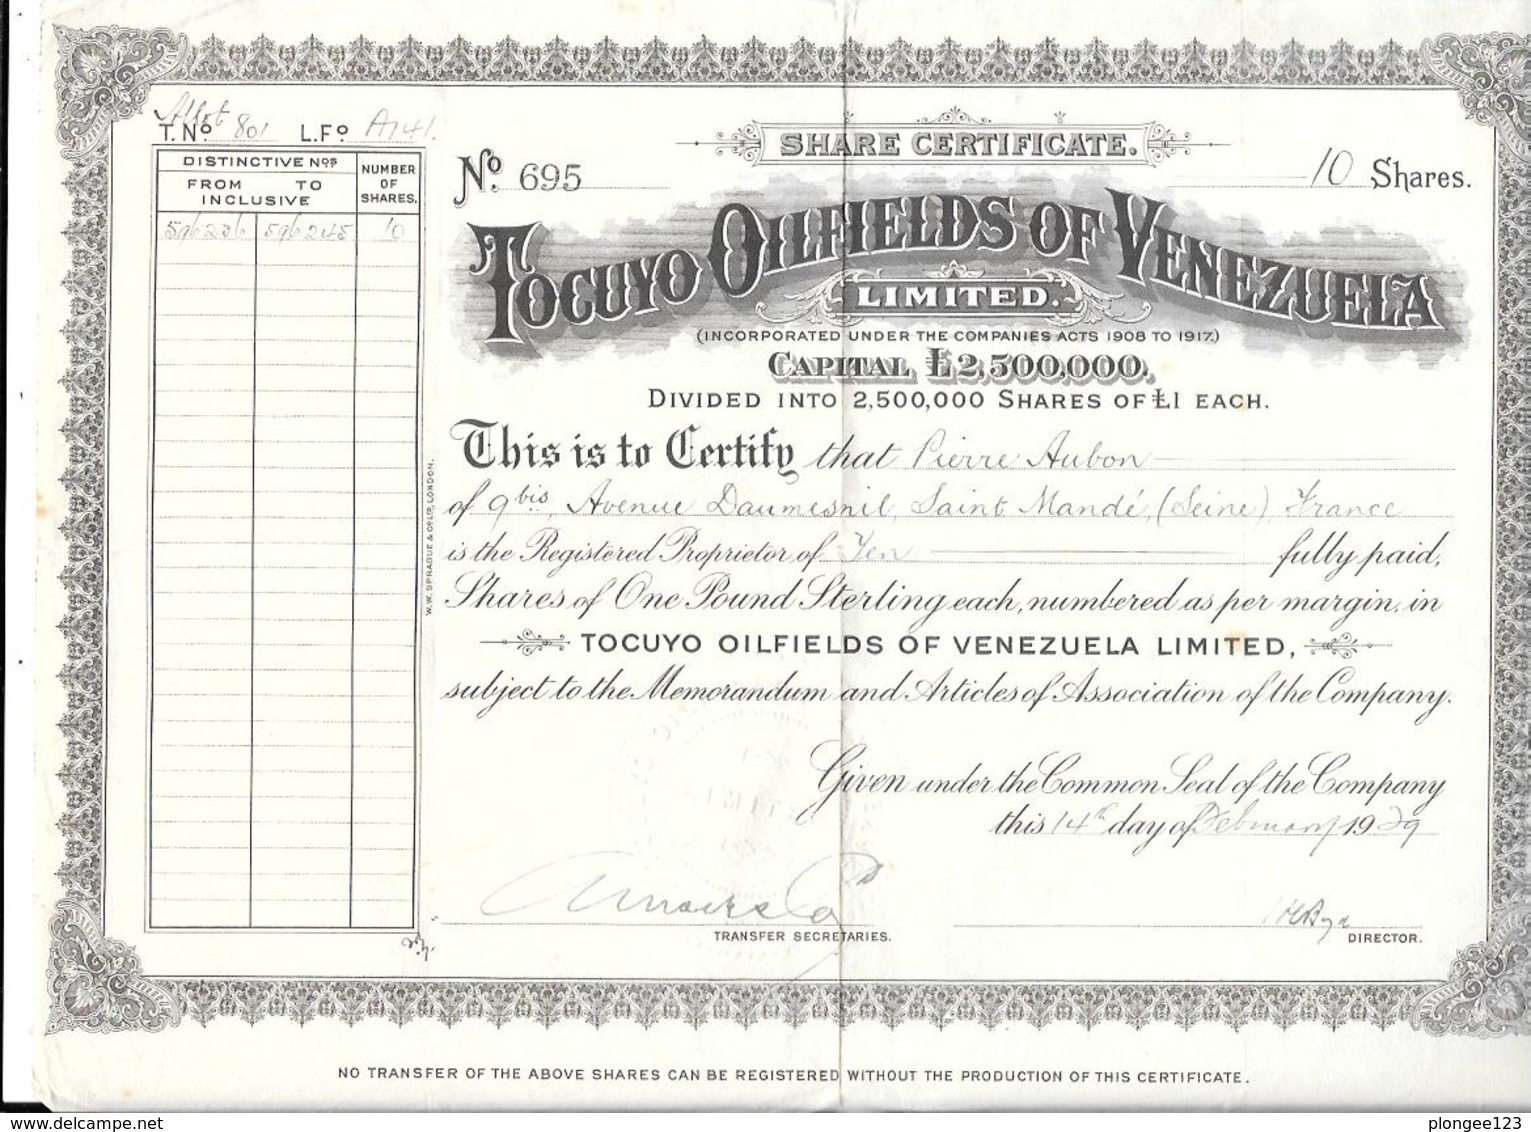 Allot
T. No. 801 L.Fo. A141.
DISTINCTIVE Nos.
FROM TO
INCLUSIVE
NUMBER
OF
SHARES.
596236 596245 10
W.W. SPRAGUE & CO LD. LONDON.
SHARE CERTIFICATE.
No. 695
10 Shares.
TOCUYO OILFIELDS OF VENEZUELA
LIMITED.
(INCORPORATED UNDER THE COMPANIES ACTS 1908 TO 1917.)
CAPITAL £2,500,000.
DIVIDED INTO 2,500,000 SHARES OF £1 EACH.
This is to Certify that Pierre Aubon
of 9 bis, Avenue Daumesnil, Saint Mandé, (Seine), France
is the Registered Proprietor of Ten fully paid,
Shares of One Pound Sterling each, numbered as per margin, in
TOCUYO OILFIELDS OF VENEZUELA LIMITED,
subject to the Memorandum and Articles of Association of the Company.
Given under the Common Seal of the Company
this 14th day of February 1929
TRANSFER SECRETARIES.
DIRECTOR.
NO TRANSFER OF THE ABOVE SHARES CAN BE REGISTERED WITHOUT THE PRODUCTION OF THIS CERTIFICATE.
plongee123